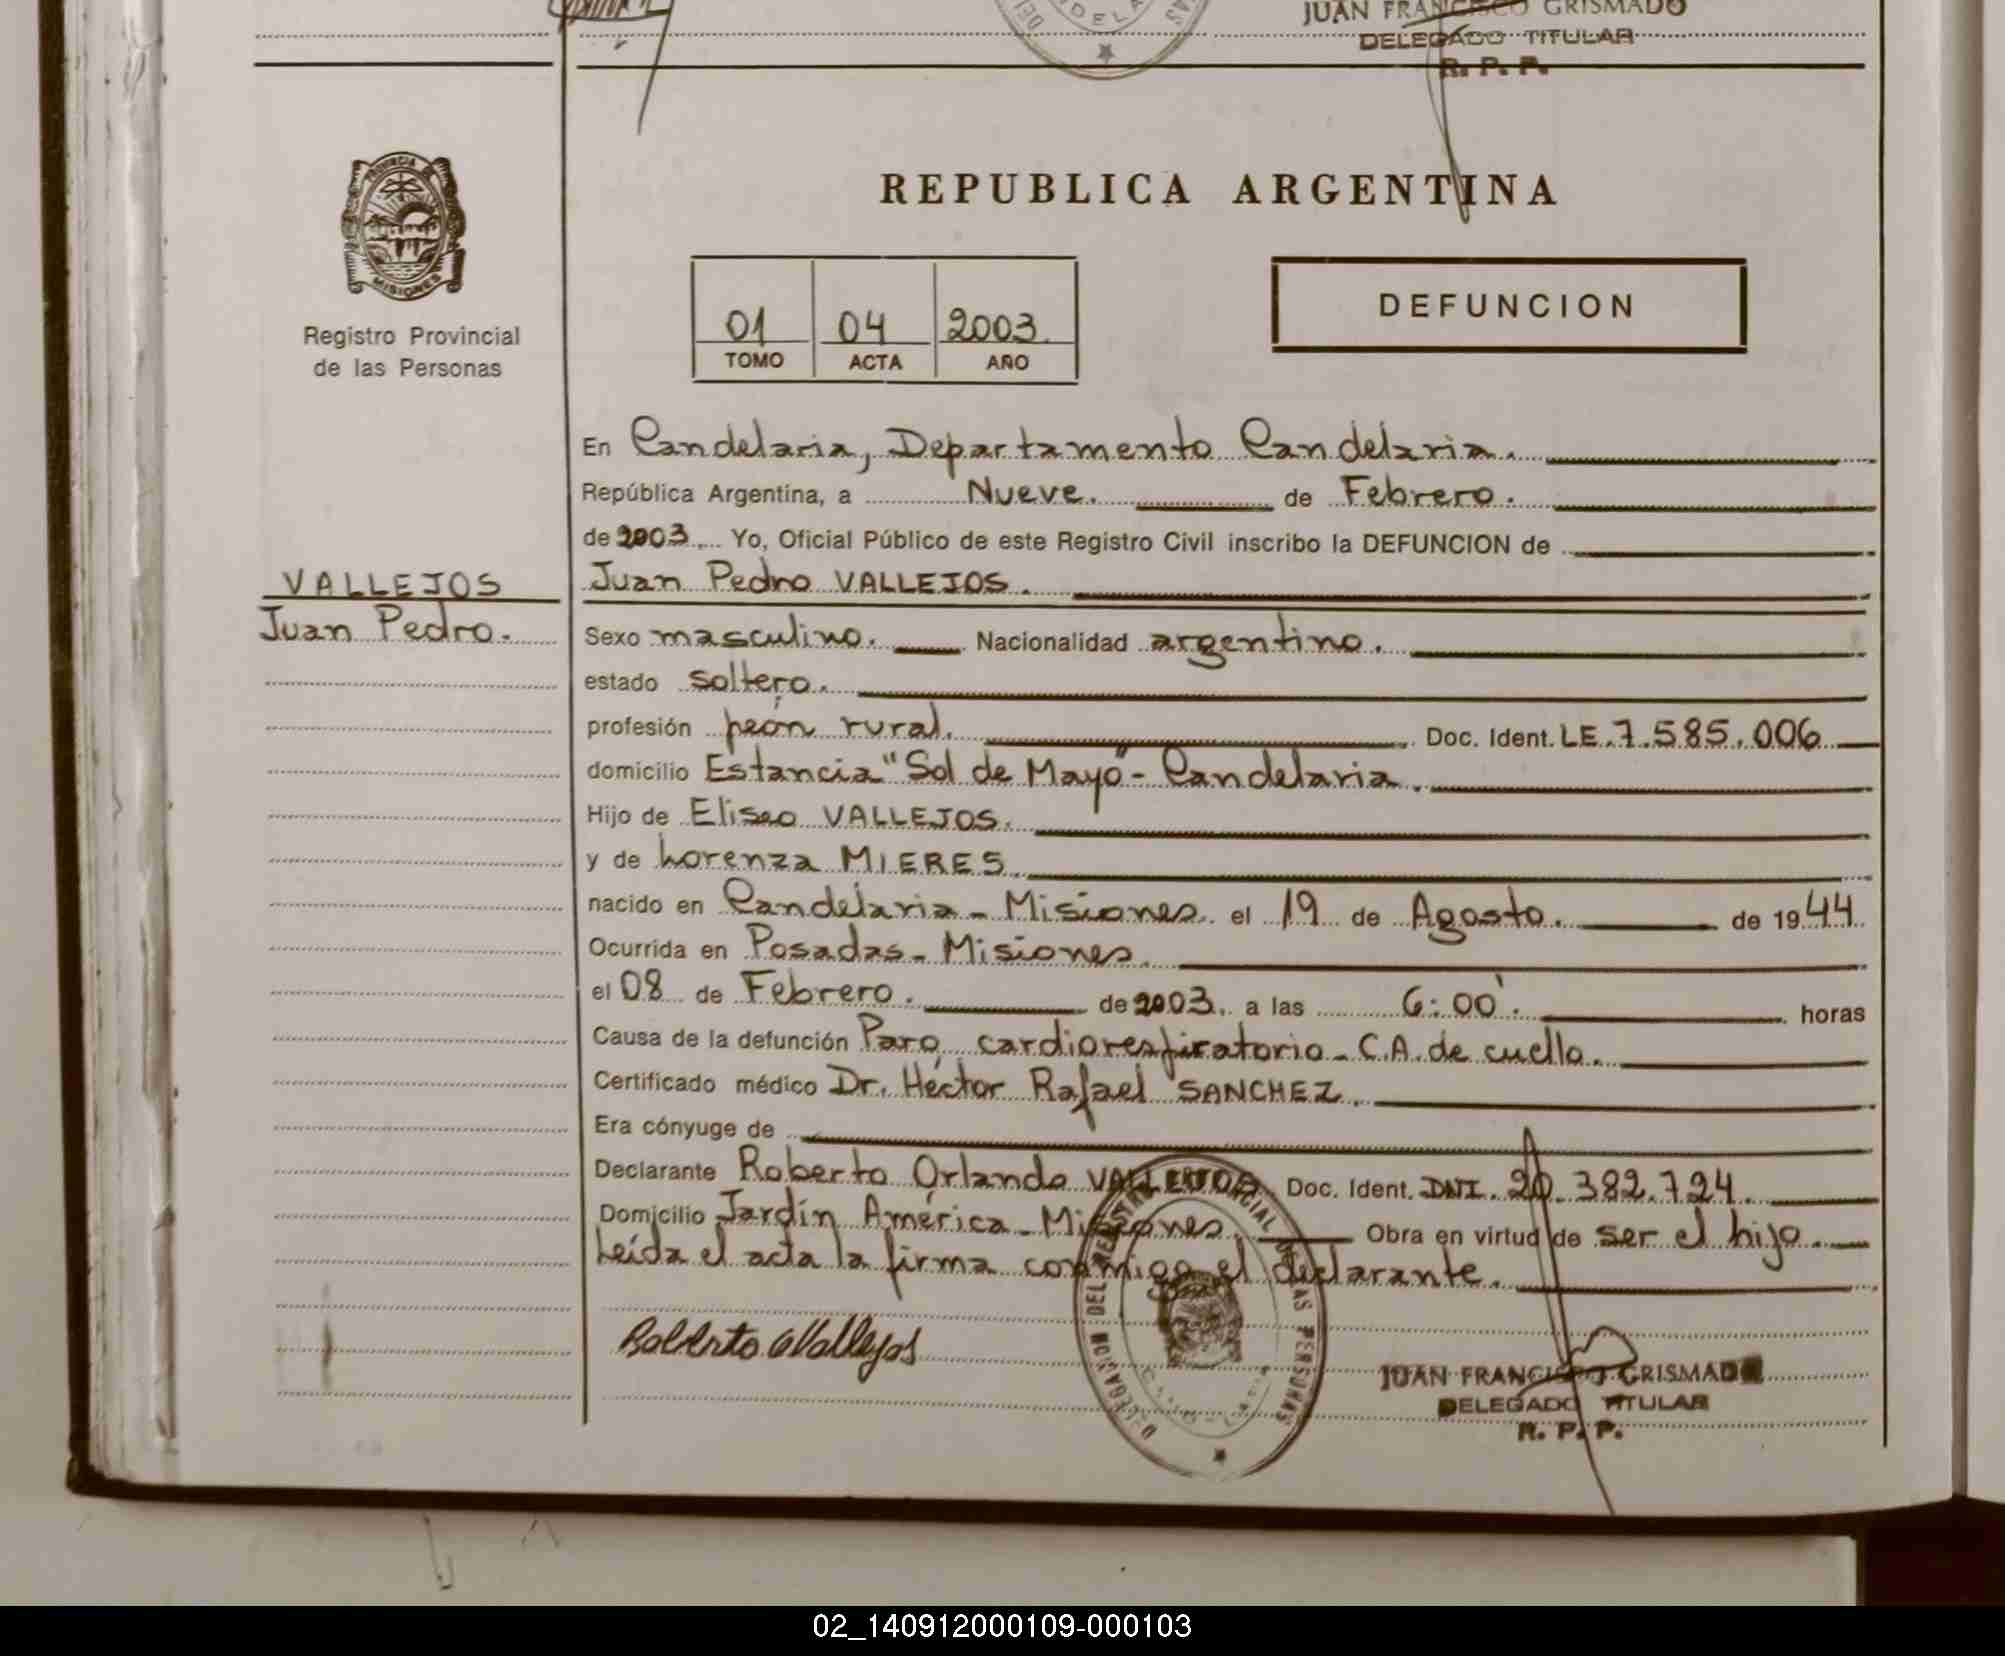 JUAN FRANCISCO GRISMADO
DELEGADO TITULAR
R. P. P.
PROVINCIA DE
MISIONES
Registro Provincial
de las Personas
REPUBLICA ARGENTINA
01 04 2003.
TOMO ACTA AÑO
DEFUNCION
En Candelaria, Departamento Candelaria.
República Argentina, a Nueve. de Febrero.
de 2003. Yo, Oficial Público de este Registro Civil inscribo la DEFUNCION de
VALLEJOS
Juan Pedro.
Juan Pedro VALLEJOS.
Sexo masculino. Nacionalidad argentino.
estado soltero.
profesión peón rural. Doc. Ident. LE.7.585.006
domicilio Estancia "Sol de Mayo" - Candelaria.
Hijo de Eliseo VALLEJOS.
y de Lorenza MIERES.
nacido en Candelaria - Misiones. el 19 de Agosto. de 1944
Ocurrida en Posadas - Misiones.
el 08 de Febrero. de 2003. a las 6:00'. horas
Causa de la defunción Paro cardiorespiratorio - C.A. de cuello.
Certificado médico Dr. Héctor Rafael SANCHEZ.
Era cónyuge de
Declarante Roberto Orlando VALLEJOS Doc. Ident. DNI. 20.382.724.
Domicilio Jardín América - Misiones. Obra en virtud de ser el hijo.
Leída el acta la firma conmigo el declarante.
Roberto O Vallejos
DELEGACION DEL REGISTRO PROVINCIAL DE LAS PERSONAS
CANDELARIA
JUAN FRANCISCO GRISMADO
DELEGADO TITULAR
R. P. P.
02_140912000109-000103